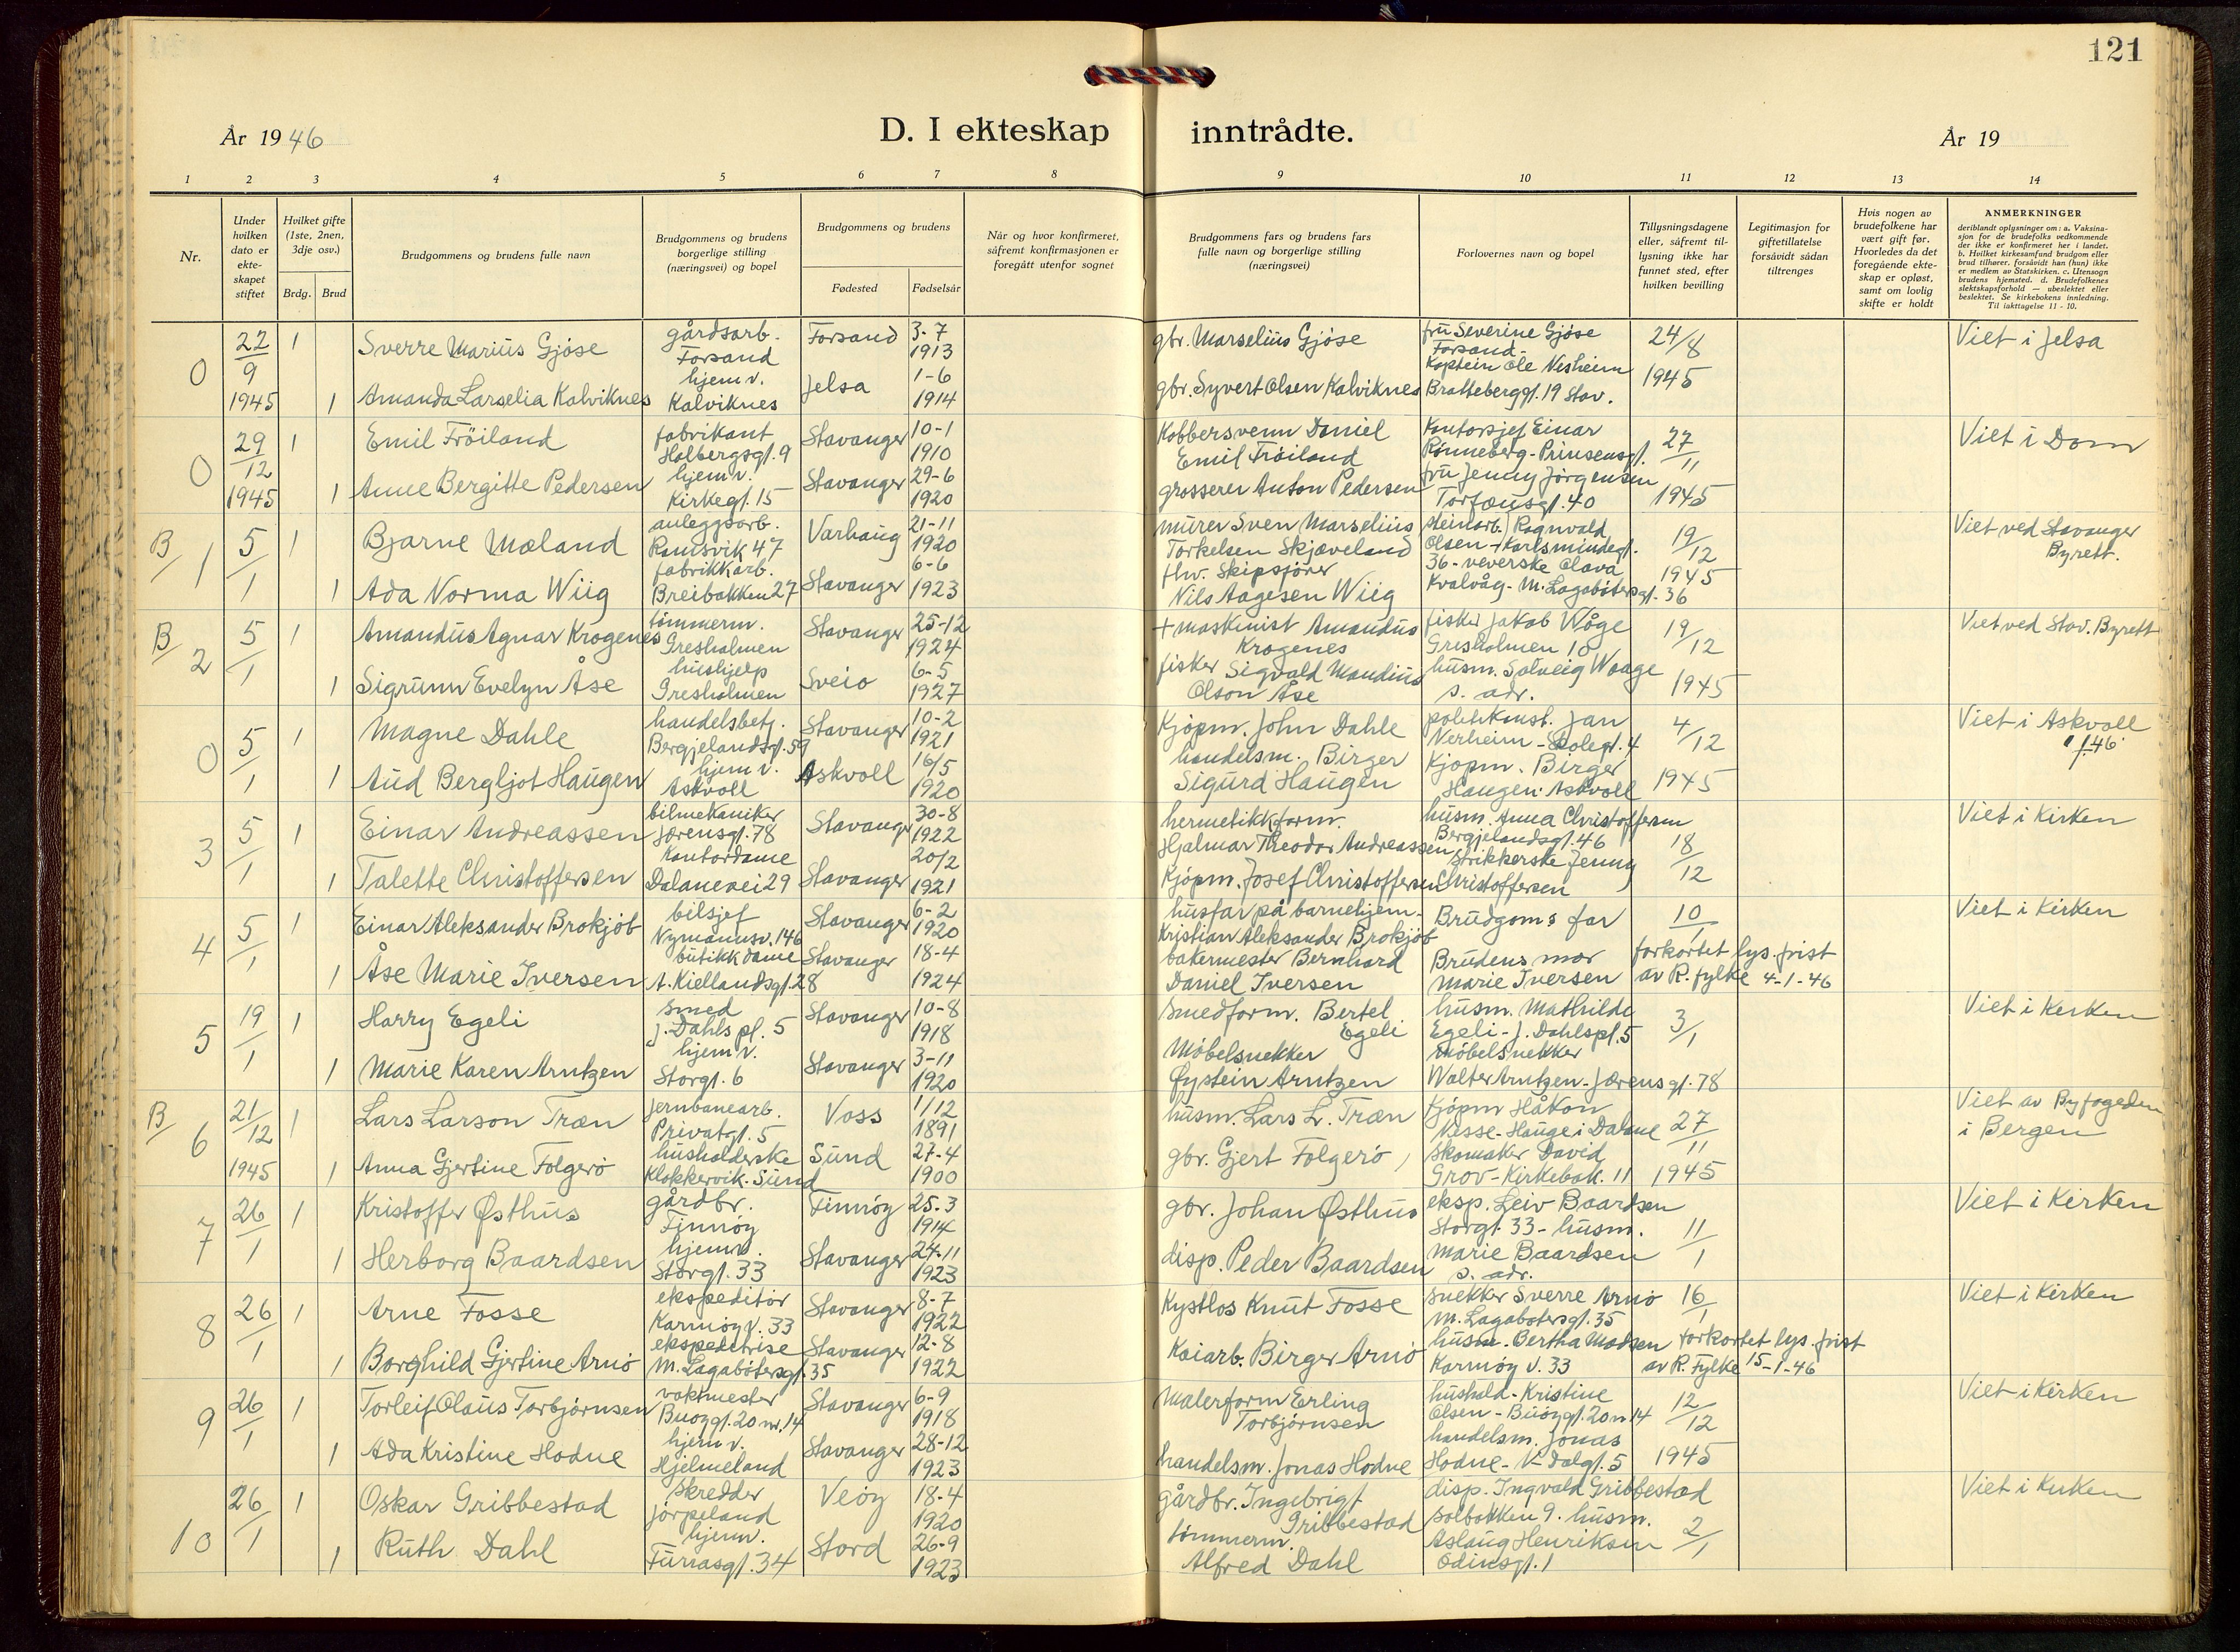 121
År 1946
D. I ekteskap
inntrådte.
År 19
1 2 3 4 5 6 7 8 9 10 11 12 13 14
Nr.
Under hvilken dato er ekte-skapet stiftet
Hvilket gifte (1ste, 2nen, 3dje osv.)
Brdg. Brud
Brudgommens og brudens fulle navn
Brudgommens og brudens borgerlige stilling (næringsvei) og bopel
Brudgommens og brudens
Fødested Fødselsår
Når og hvor konfirmeret, såfremt konfirmasjonen er foregått utenfor sognet
Brudgommens fars og brudens fars fulle navn og borgerlige stilling (næringsvei)
Forlovernes navn og bopel
Tillysningsdagene eller, såfremt til-lysning ikke har funnet sted, efter hvilken bevilling
Legitimasjon for giftetillatelse forsåvidt sådan tiltrenges
Hvis nogen av brudefolkene har vært gift før. Hvorledes da det foregående ekte-skap er opløst, samt om lovlig skifte er holdt
ANMERKNINGER
deriblandt oplysninger om: a. Vaksina-sjon for de brudefolks vedkommende der ikke er konfirmeret her i landet. b. Hvilket kirkesamfund brudgom eller brud tilhører, forsåvidt han (hun) ikke er medlem av Statskirken. c. Utensogn brudens hjemsted. d. Brudefolkenes slektskapsforhold — ubeslektet eller beslektet. Se kirkebokens innledning. Til iakttagelse 11 - 10.
0 22/9 1945 1 Sverre Marius Gjöse gårdsarb. Forsand Forsand 3-7 1913 gbr. Marselius Gjöse frü Severine Gjöse Forsand- 24/8 1945 Viet i Jelsa
1 Amanda Larselia Kalviknes hjemv. Kalviknes Jelsa 1-6 1914 gbr. Syvert Olsen Kalviknes Kaptein Ole Nesheim Brattebergg. 19 Stav.
0 29/12 1945 1 Emil Fröiland fabrikant Holbergsgt. 9 Stavanger 10-1 1910 Kobbersvenn Daniel Emil Fröiland Kontorsjef Einar Rønneberg - Prinsensgt. 27/11 1945 Viet i Dom
1 Anne Bergitte Pedersen hjemv. Kirkegt. 15 Stavanger 29-6 1920 grosserer Anton Pedersen frü Jenny Jörgensen Torfæusgt. 40
B/1 5/1 1 Bjarne Mæland anleggsarb. Ramsvik 47 Varhaug 21-11 1920 murer Sven Marselius Torkelsen Skjæveland steinarb. Ragnvald Olsen - Karlsmindegt. 36 - veverske Olava 19/12 1945 Viet ved Stavanger Byrett.
1 Ada Norma Wiig fabrikkarb. Breibakken 27 Stavanger 6-6 1923 fhv. Skipsförer Nils Aagesen Wiig Kvalvåg - M. Lagabötersgt. 36
B/2 5/1 1 Amandus Agnar Krogenes tömmerm. Gresholmen Stavanger 25-12 1924 + maskinist Amandus Krogenes fisker Jakob Wåge Gresholmen 10 19/12 1945 Viet ved Stav. Byrett
1 Sigrunn Evelyn Åse hushjelp Gresholmen Sveio 6-5 1927 fisker Sigvald Mandius Olson Åse husm. Solveig Waage s. adr.
0 5/1 1 Magne Dahle handelsbetj. Bergjelandsgt. 59 Stavanger 10-2 1921 Kjöpm. John Dahle politikonst. Jan Nerheim - Skolegt. 4 4/12 1945 Viet i Askvoll 1/1 46
1 Aud Bergljot Haugen hjemv. Askvoll Askvoll 16/5 1920 handelsm. Birger Sigurd Haugen Kjöpm. Birger Haugen. Askvoll
3 5/1 1 Einar Andreassen bilmekaniker Jærensgt. 78 Stavanger 30-8 1922 hermetikkform. Hjalmar Theodor Andreassen husm. Anna Christoffersen Bergjelandsgt. 46 18/12 Viet i Kirken
1 Talette Christoffersen Kontordame Dalanevei 29 Stavanger 20/2 1921 Kjöpm. Josef Christoffersen Strikkerske Jenny Christoffersen
4 5/1 1 Einar Aleksander Brokjöb bilsjef Nymannsv. 146 Stavanger 6-2 1920 husfar på barnehjem. Kristian Aleksander Brokjöb Brudgoms far 10/1 Viet i Kirken
1 Åse Marie Iversen butikkdame A. Kiellandsgt. 28 Stavanger 18-4 1924 bakermester Bernhard Daniel Iversen Brudens mor Marie Iversen forkortet lys. frist av R. fylke 4-1-46
5 19/1 1 Harry Egeli smed J. Dahls pl. 5 Stavanger 10-8 1918 Smedform. Bertel Egeli husm. Mathilde Egeli - J. Dahlspl. 5 3/1 Viet i Kirken
1 Marie Karen Arntzen hjemv. Storgt. 6 Stavanger 3-11 1920 Möbelsnekker Øystein Arntzen Möbelsnekker Walter Arntzen - Jærensgt. 78
B/6 21/12 1945 1 Lars Larson Træn jernbanearb. Privatgt. 5 Voss 1/12 1891 husm. Lars L. Træn Kjöpm Håkon Nesse - Hauge i Dalane 27/11 1945 Viet av Byfogeden i Bergen
1 Anna Gjertine Folgerö husholderske Klokkervik. Sund Sund 27-4 1900 gbr. Gjert Folgerö Skomaker David Grov - Kirkebak. 11
7 26/1 1 Kristoffer Østhus gårdbr. Finnöy Finnöy 25.3 1914 gbr. Johan Østhus eksp. Leiv Baardsen Storgt. 33 - husm. 11/1 Viet i Kirken
1 Herborg Baardsen hjemv. Storgt. 33 Stavanger 24-11 1923 disp. Peder Baardsen Marie Baardsen s. adr.
8 26/1 1 Arne Fosse ekspeditör Karmöy v. 33 Stavanger 8-7 1922 Kystlos Knut Fosse Snekker Sverre Arnö M. Lagabötersgt. 35 16/1 Viet i Kirken
1 Borghild Gjertine Arnö ekspeditrise M. Lagabötersgt. 35 Stavanger 12-8 1922 Kaiarb. Birger Arnö husm. Bertha Madsen Karmöy v. 33 forkortet lys. frist av R. Fylke 15-1-46
9 26/1 1 Torleif Olaus Torbjörnsen vaktmester Buøygt. 20 nr. 14 Stavanger 6-9 1918 Malerform Erling Torbjörnsen hushold. Kristine Olsen - Buöygt. 20 n 14 12/12 1945 Viet i Kirken
1 Ada Kristine Hodne hjemv. Hjelmeland Stavanger 28-12 1923 handelsm. Jonas Hodne handelsm. Jonas Hodne - V. Dalgt. 5
10 26/1 1 Oskar Gribbestad Skredder Jörpeland Veöy 18-4 1920 gårdbr. Ingebrigt Gribbestad disp. Ingvald Gribbestad Solbakken 9. husm. 2/1 Viet i Kirken
1 Ruth Dahl hjemv. Furrasgt. 34 Stord 26-9 1923 tömmerm. Alfred Dahl Aslaug Henriksen Odinsgt. 1